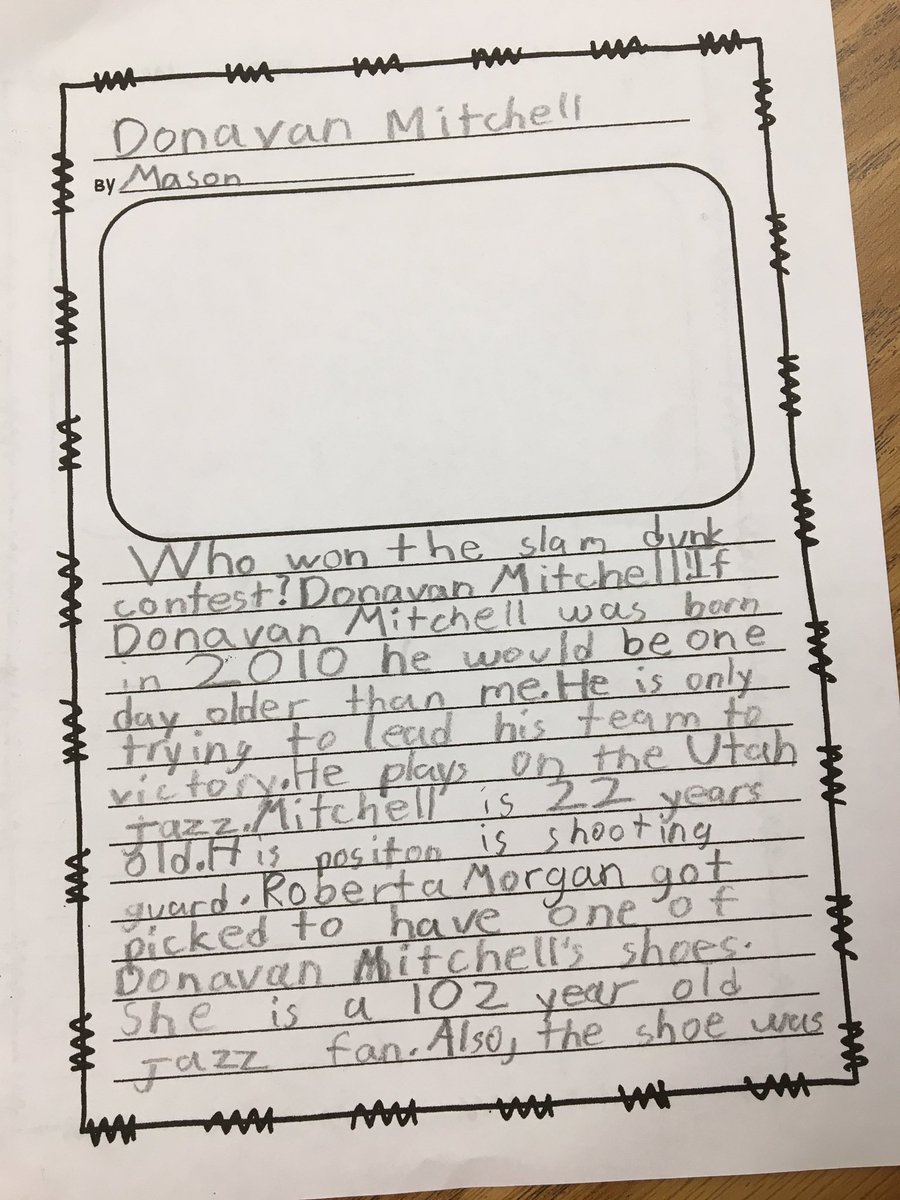 Donavan Mitchell
BY Mason
Who won the slam dunk
contest? Donavan Mitchell! If
Donavan Mitchell was born
in 2010 he would be one
day older than me. He is only
trying to lead his team to
victory. He plays on the Utah
jazz. Mitchell is 22 years
old. His positon is shooting
guard. Roberta Morgan got
picked to have one of
Donavan Mitchell's shoes.
She is a 102 year old
jazz fan. Also, the shoe was